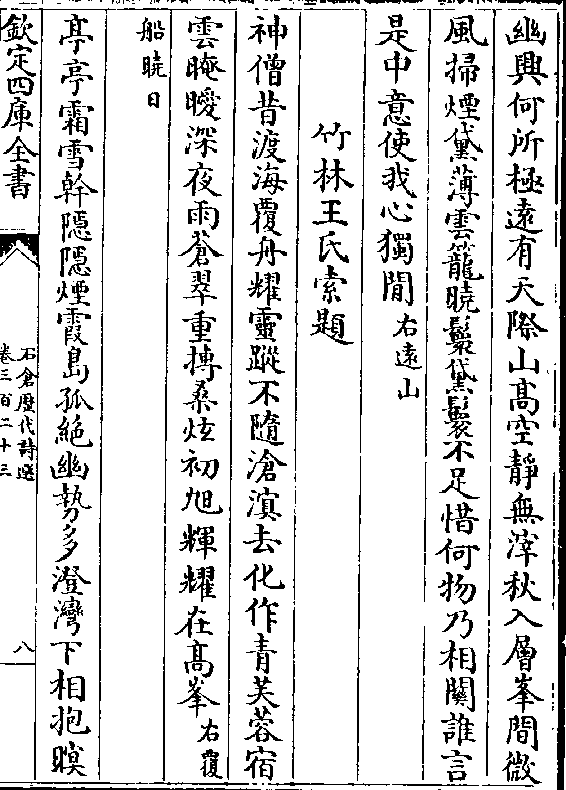 幽興何所極遠有天際山髙空靜無滓秋入層峯間微
風掃煙黛薄雲籠曉鬟黛鬟不足惜何物乃相關誰言
是中意使我心獨閒右遠山
竹林王氏索題
神僧昔渡海覆舟耀靈蹤不隨滄溟去化作青芙蓉宿
雲晻曖深夜雨蒼翠重摶桑炫初旭輝耀在髙峯右覆
船曉日
亭亭霜雪幹隱隱煙霞島孤絶幽勢多澄灣下相抱暝
欽定四庫全書
石倉歴代詩選
卷三百二十三
八